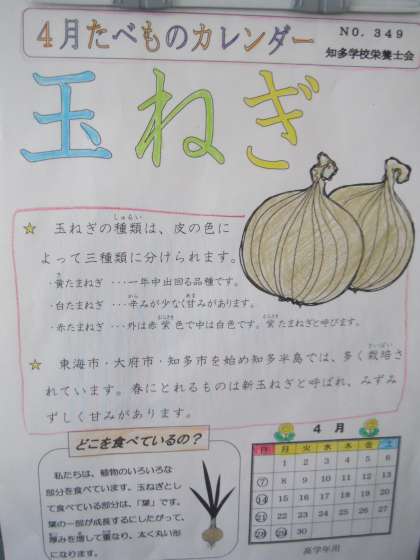 4月たべものカレンダー
NO. 349
知多学校栄養士会
玉ねぎ
☆ 玉ねぎの種類は、皮の色に
よって三種類に分けられます。
・黄たまねぎ ・・・一年中出回る品種です。
・白たまねぎ ・・・辛みが少なく甘みがあります。
・赤たまねぎ ・・・外は赤紫色で中は白色です。紫たまねぎと呼びます。
☆ 東海市・大府市・知多市を始め知多半島では、多く栽培さ
れています。春にとれるものは新玉ねぎと呼ばれ、みずみ
ずしく甘みがあります。
どこを食べているの？
私たちは、植物のいろいろな
部分を食べています。玉ねぎとし
て食べている部分は、「葉」です。
葉の一部が成長するにしたがって、
厚みを増して重なり、太く丸い形
になります。
4 月
日 月 火 水 木 金 土
1 2 3 4 5 6
7 8 9 10 11 12 13
14 15 16 17 18 19 20
21 22 23 24 25 26 27
28 29 30
高学年用